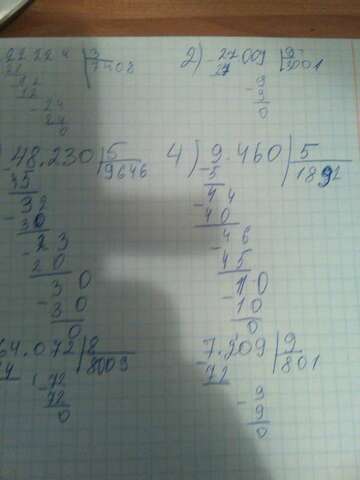 22224 | 3
21 7408
12
12
- 24
24
0
2) 27009 | 9
27 3001
- 9
9
0
- 48.230 | 5
45 9646
- 32
30
- 23
20
30
- 30
0
4) - 9.460 | 5
5 1892
- 44
40
- 46
45
- 10
10
0
64.072 | 8
8009
- 72
72
0
- 7.209 | 9
72 801
- 9
9
0